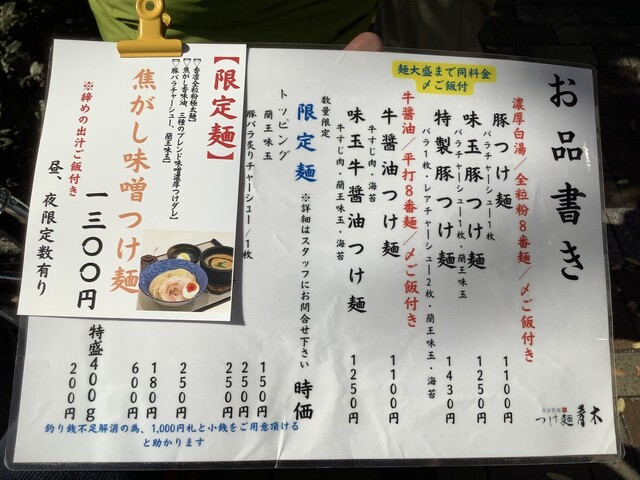 お品書き
麺大盛まで同料金
〆ご飯付
濃厚白湯/全粒粉8番麺/〆ご飯付き
豚つけ麺 1100円
バラチャーシュー1枚
味玉豚つけ麺 1250円
バラチャーシュー1枚・蘭王味玉
特製豚つけ麺 1430円
バラ1枚・レアチャーシュー2枚・蘭王味玉・海苔
牛醤油/平打8番麺/〆ご飯付き
牛醤油つけ麺 1100円
牛すじ肉・海苔
味玉牛醤油つけ麺 1250円
牛すじ肉・蘭王味玉・海苔
数量限定
限定麺 ※詳細はスタッフにお問合せ下さい 時価
トッピング
蘭王味玉 150円
豚バラ炙りチャーシュー/1枚 250円
250円
250円
180円
600円
特盛400g 200円
釣り銭不足解消の為、1,000円札と小銭をご用意頂ける
と助かります
つけ麺 青木
【限定麺】
【▽香澄全粒粉極太麺】
【▽焦がし香味油、三種のブレンド味噌濃厚つけダレ】
【▽豚バラチャーシュー、蘭王味玉】
焦がし味噌つけ麺
一三〇〇円
※締めの出汁ご飯付き
昼、夜限定数有り